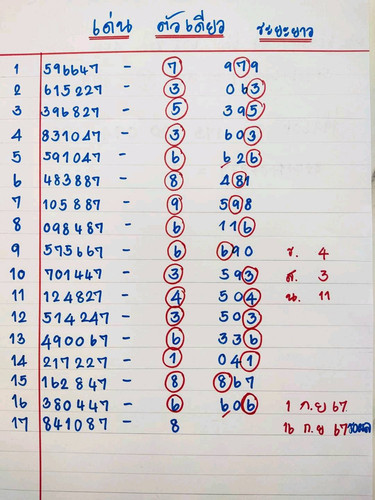 เด่น ตัวเดียว ระยะยาว
1 596647 - 7 979
2 615227 - 3 063
3 396827 - 5 395
4 831047 - 3 603
5 591047 - 6 626
6 483887 - 8 481
7 105887 - 9 598
8 098487 - 6 116
9 575667 - 6 690 ช. 4
10 701447 - 3 593 ส. 3
11 124827 - 4 504 น. 11
12 514247 - 3 503
13 490067 - 6 336
14 217227 - 1 041
15 162847 - 8 867
16 380447 - 6 606 1 ก.ย 67
17 841087 - 8 16 ก.ย 67 รอผล